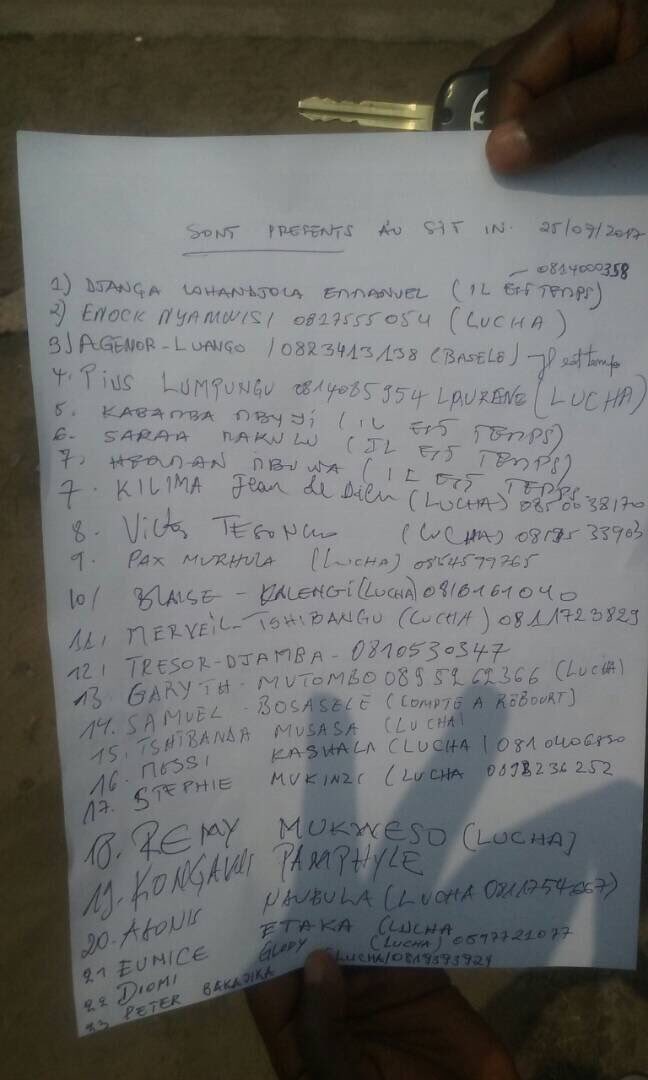 SONT PRESENTS AU SIT IN. 25/09/2017
1) DJANGA LOHANDJOLA EMMANUEL (IL EST TEMPS) 0814000358
2) ENOCK NYAMWISI 0817555054 (LUCHA)
3) AGENOR-LUANGO / 0823413138 (BASELE) Il est temps
4. PIUS LUMPUNGU 0814085954 (LUCHA)
5. KABAMBA MBUYI (IL EST TEMPS)
6. SARAA MAKULU (IL EST TEMPS)
7. HERMAN MBUWA (IL EST TEMPS
7. KILIMA Jean de Dieu (LUCHA) 0850038170
8. Victor (LUCHA)
9. PAX MURHULA (LUCHA) 0854599765
10/ BLAISE - KALENGI (LUCHA) 0816161040
11. MERVEIL-TSHIBANGU (LUCHA) 0811723829
12. TRESOR-DJAMBA- 0810530347
13. GARYTH-MUTOMBO 0895262366 (LUCHA)
14. SAMUEL - BOSASELE (COMPTE A REBOURT)
15. TSHIBANDA MUSASA (LUCHA)
16. MESSI KASHALA (LUCHA)
17. STEPHIE MUKINZI (LUCHA
18. REMY MUKWESO (LUCHA)
19. PAMPHYLE
20. NAUBULA (LUCHA
21 EUNICE ETAKA (LUCHA
22 DIOMI GLODY (LUCHA) 0597721077
23 PETER BAKAJIKA (LUCHA)